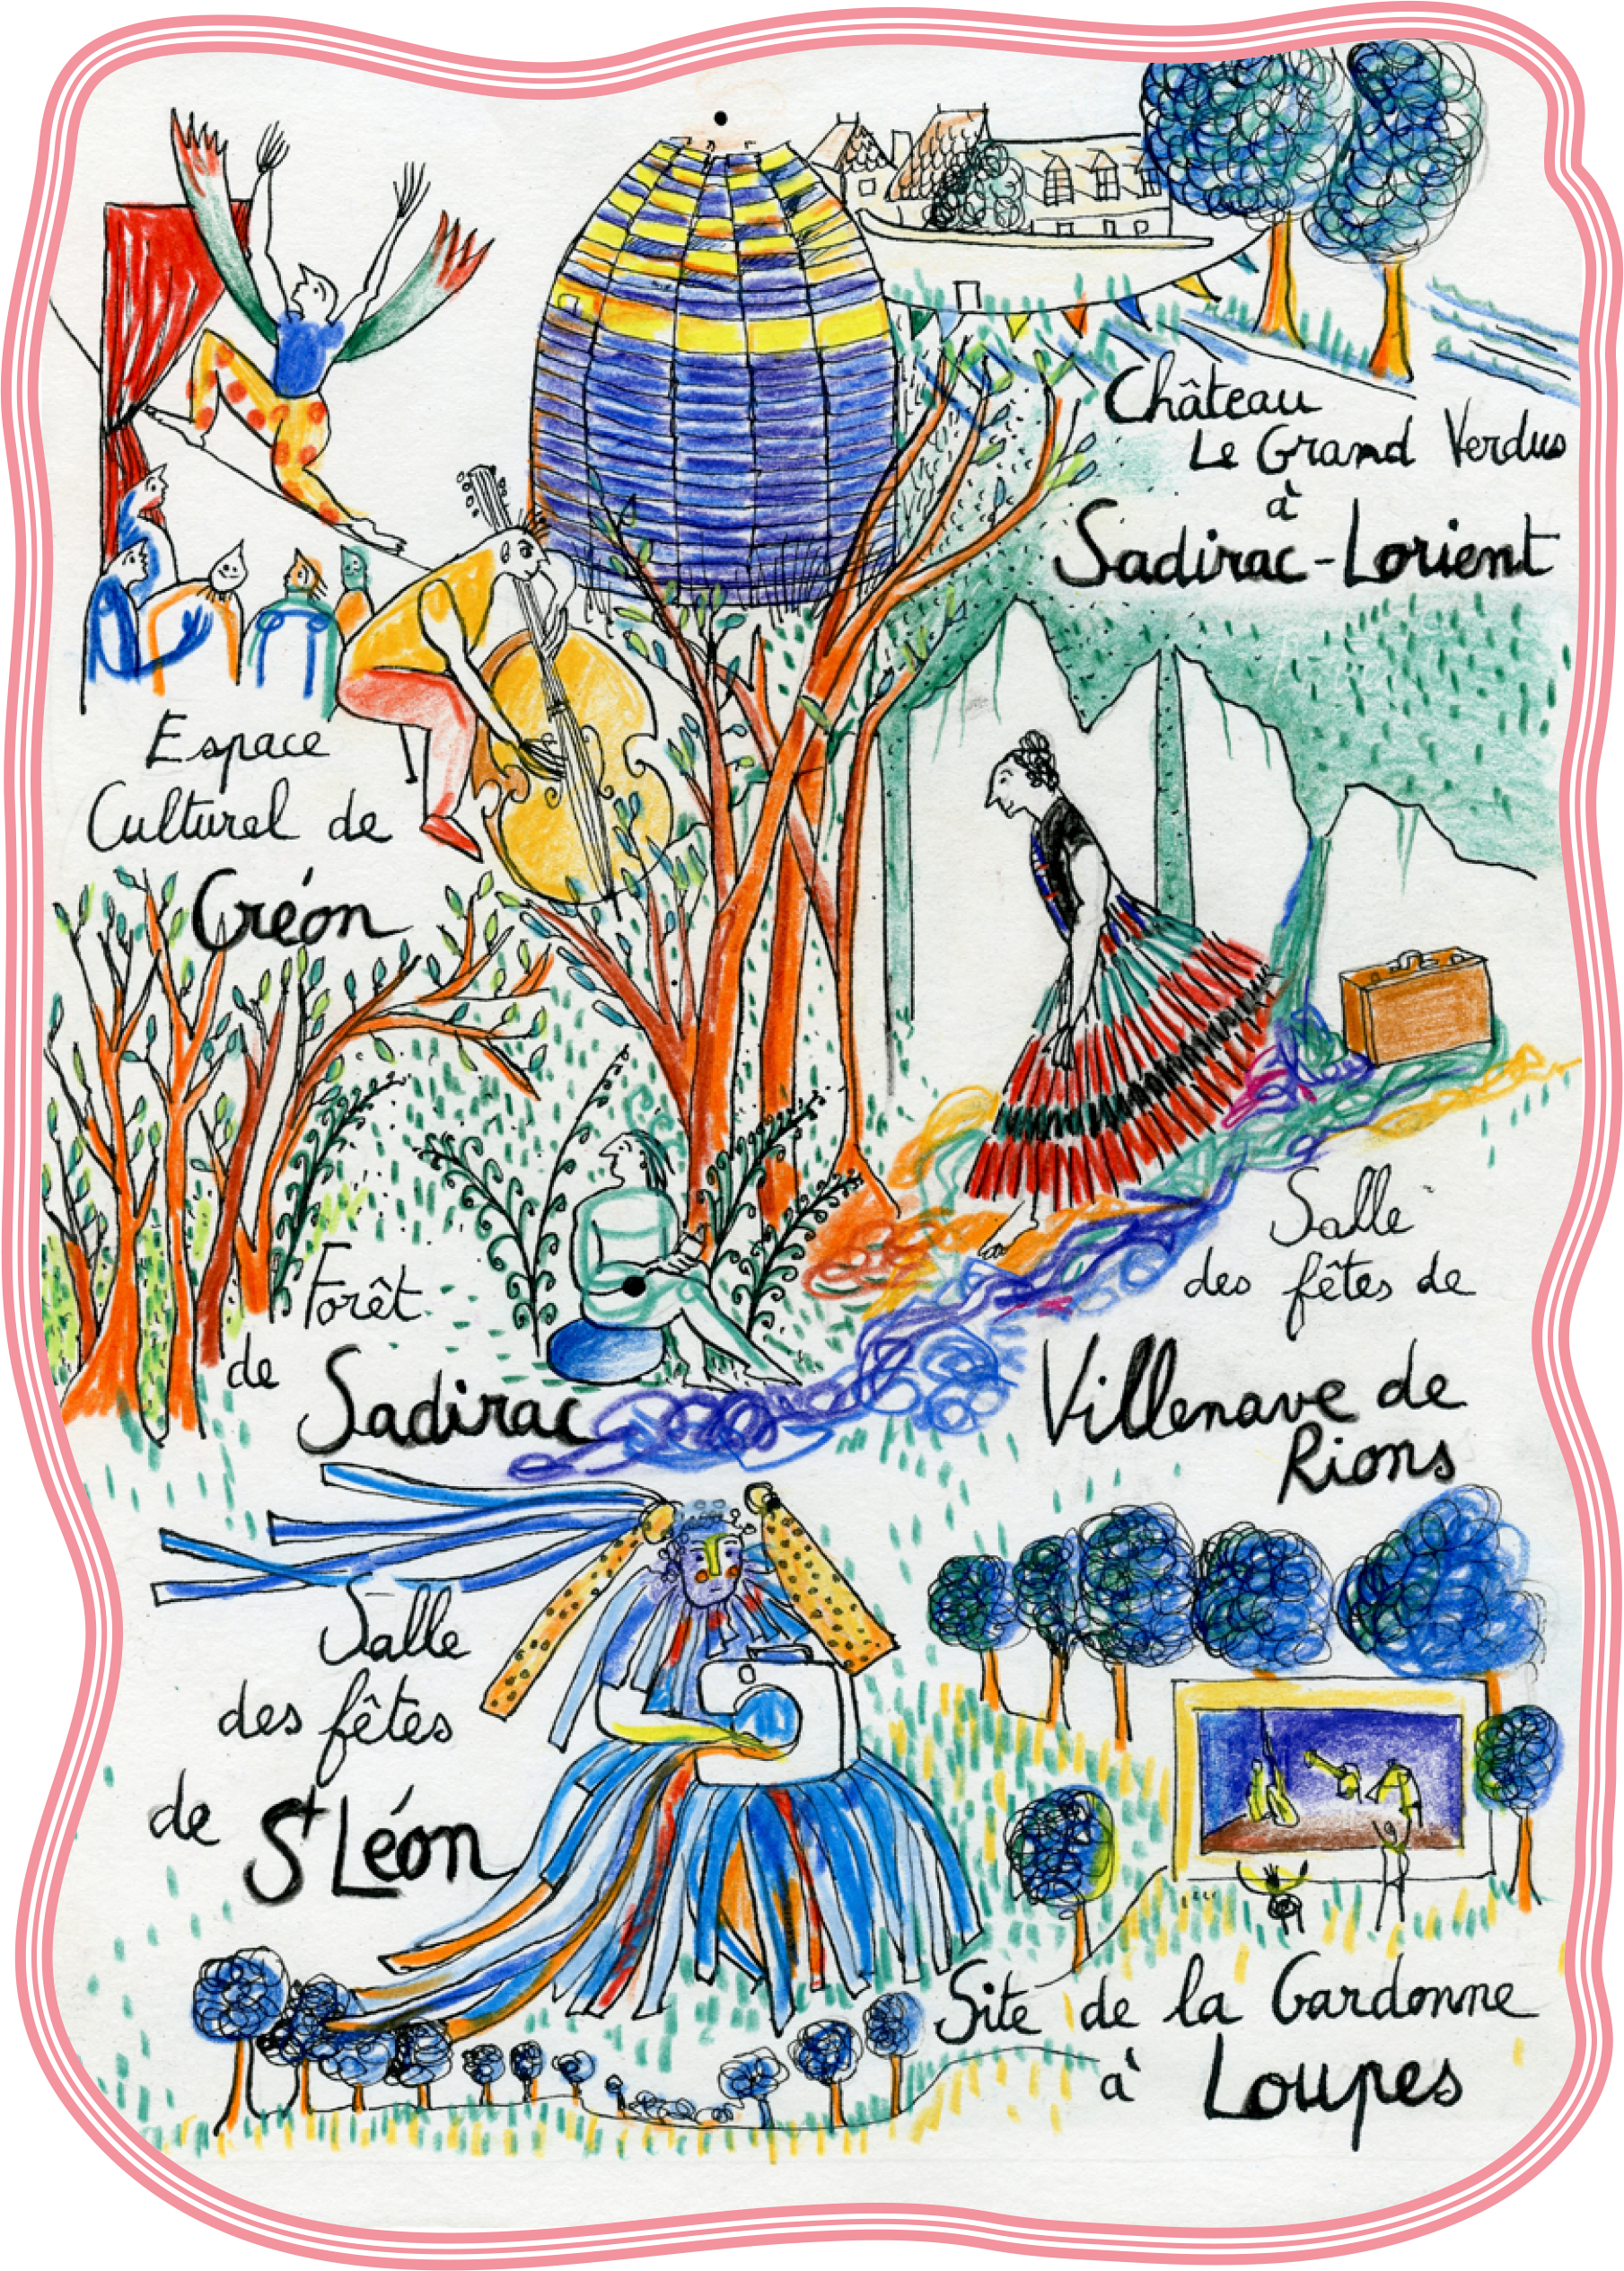 Château
Le Grand Verdus
à
Sadirac-Lorient
Espace
Culturel de
Créon
Salle
des fêtes de
Villenave de
Rions
Forêt
de
Sadirac
Salle
des fêtes
de St Léon
Site de la Gardonne
à Loupes